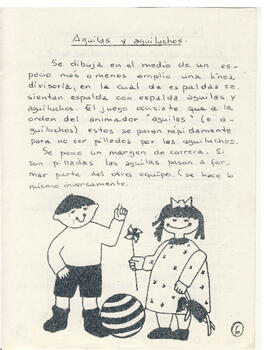 Aguilas y aguiluchos.
Se dibuja en el medio de un es-
pacio más o menos amplio una línea
divisoria, en la cual de espaldas se
sientan espalda con espalda aguilas y
aguiluchos. El juego consiste que a la
orden del animador "aguilas" (o a-
guiluchos) estos se paran rápidamente
para no ser pillados por los aguiluchos.
Se pone un margen de carrera. Si
son pilladas las aguilas pasan a for-
mar parte del otro equipo. (se hace lo
mismo inversamente.
6